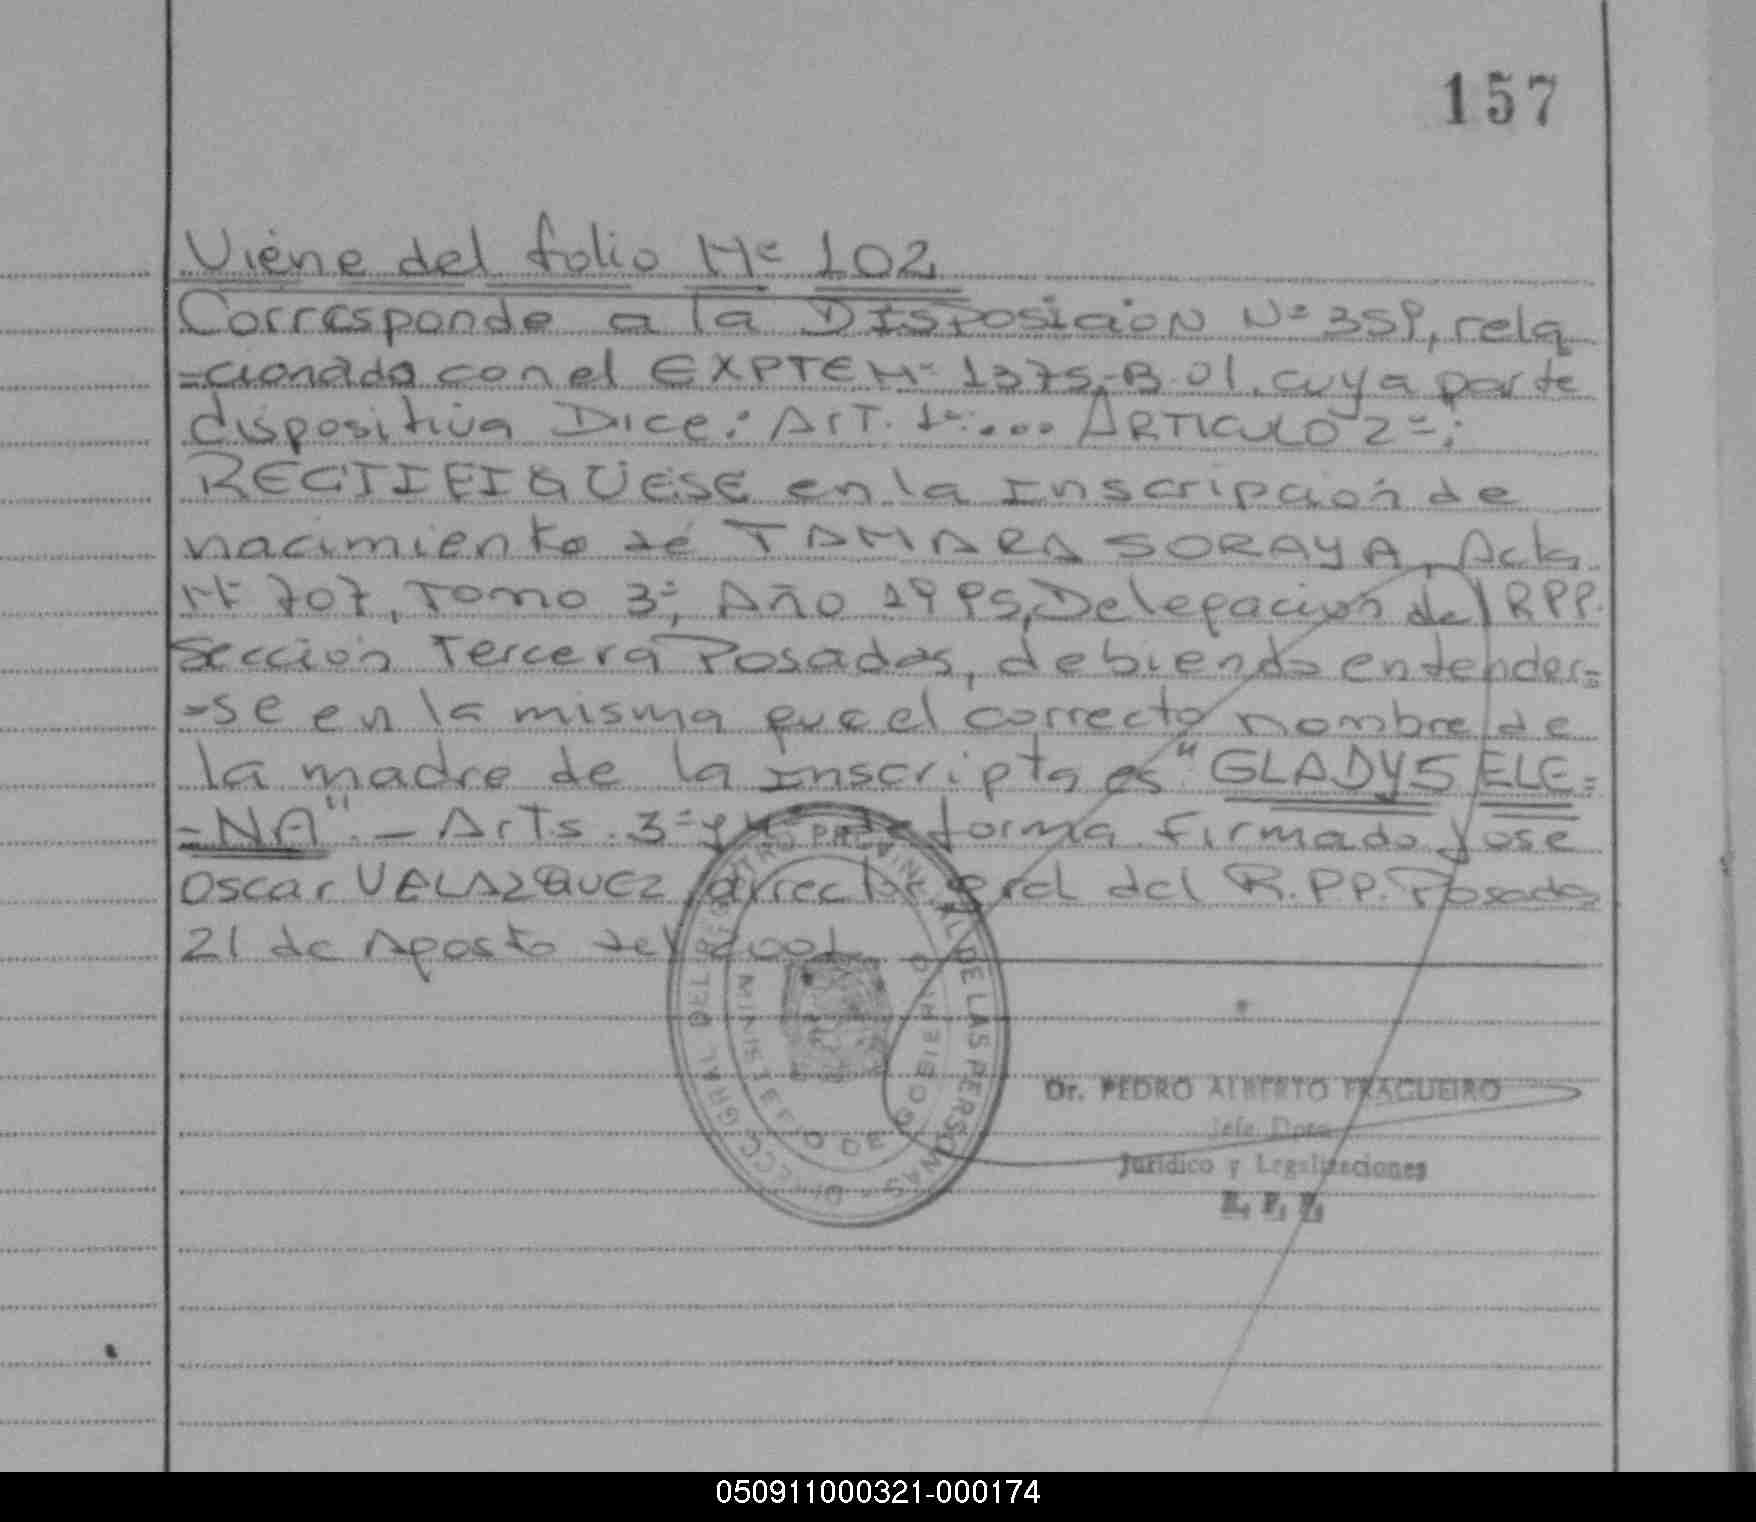 157
Viene del folio Nº 102
Corresponde a la DISPOSICION Nº 359, rela
=cionado con el EXPTE Nº 1375-B-01, cuya parte
dispositiva Dice: ArT. 1º:... ARTICULO 2º:
RECTIFIQUESE en la Inscripción de
nacimiento de TAMARA SORAYA, Acta
Nº 707, Tomo 3º, Año 1995, Delegación del RPP.
Sección Tercera Posadas, debiendo entender=
=se en la misma que el correcto nombre de
la madre de la Inscripta es "GLADYS ELE=
=NA". - ArTs. 3º y 4º de forma. Firmado José
Oscar VELAZQUEZ, director gral del R.PP. Posadas
21 de Agosto del 2001
DIRECC. GRAL. DEL REGISTRO PROVINCIAL DE LAS PERSONAS
MINISTERIO DE GOBIERNO
Dr. PEDRO ALBERTO FRAGUEIRO
Jefe Dpto.
Jurídico y Legalizaciones
R. P. P.
050911000321-000174